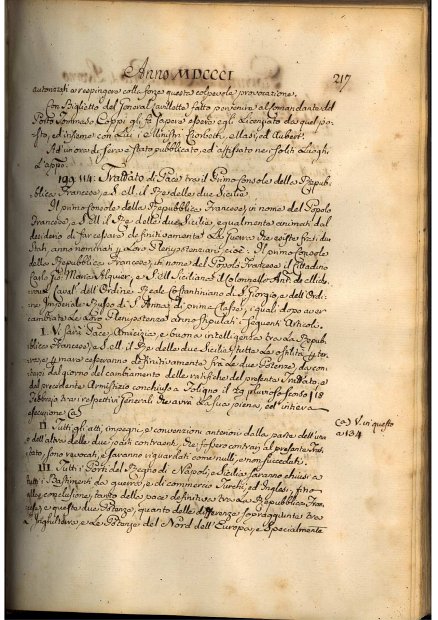 Anno MDCCCI
217
autorizati a respingere colla forza questa colpevole provocazione.
Con Biglietto del General fatto pervenire al Comandante del
Porto Tommaso Coppi gli fa sapere essere egli Licenziato da quel po-
sto, ed insieme con Lui i Ministri ed Aubert.
Ad un ora di sera è stato pubblicato, ed affissato nei soliti Luoghi
L'appo:
199. 114: Trattato di Pace tra il Primo Console della Repub-
blica Francese, e S. M. il Re delle due Sicilie
Il primo Console della Repubblica Francese, in nome del Popolo
Francese, e S. M. il Re delle due Sicilie, equalmente animati dal
desiderio di far cessare definitivamente La Guerra che esiste fra i du
Stati, anno nominati p Loro Plenipotenziari, cioè: Il primo Console
della Repubblica Francese, in nome del Popolo Francese il Cittadino
Carlo Maria Alquier, e S. M. Siciliana il Colonnello Ant: de
Caval: dell'Ordine Reale Costantiniano di S. Giorgio, e dell'Ordi-
ne Imperiale Russo di S. Anna di prima Classe, i quali dopo aver
cambiate Le Loro Plenipotenze anno stipulati i seguenti Articoli.
I. Vi sarà Pace, Amicizia, e buona intelligenza tra La Repub-
blica Francese, e S. M. il Re delle due Sicilie tutte Le ostilità p ter-
ra, e p mare cesseranno definitivamente fra Le due Potenze, da con-
tarsi dal giorno del cambiamento delle ratifiche del presente Trattato, e
dal precedente Armistizio concluso a Foligno il 29 pluvoso scorso (18
Febbrajo tra i respettivi Generali che avrà La sua piena, ed intiera
esecuzione (a)
(a) V. in questo
a 134
II. Tutti gli atti, impegni, e convenzioni anteriori dalla parte dell'una
e dell'altra delle due parti contraenti, che fossero contrarj al presente Trat-
tato, sono revocati, e saranno riguardati come nulli, e non succeduti.
III. Tutti i Porti del Regno di Napoli, e Sicilia saranno chiusi a
tutti i Bastimenti da guerra, e di commercio Turchi, ed Inglesi, fino
alla conclusione, tanto della pace definitiva tra La Repubblica Fran-
cese, e queste due Potenze, quanto delle differenze sopraggiunte tra
L'Inghilterra, e Le Potenze del Nord dell'Europa, e Specialmente